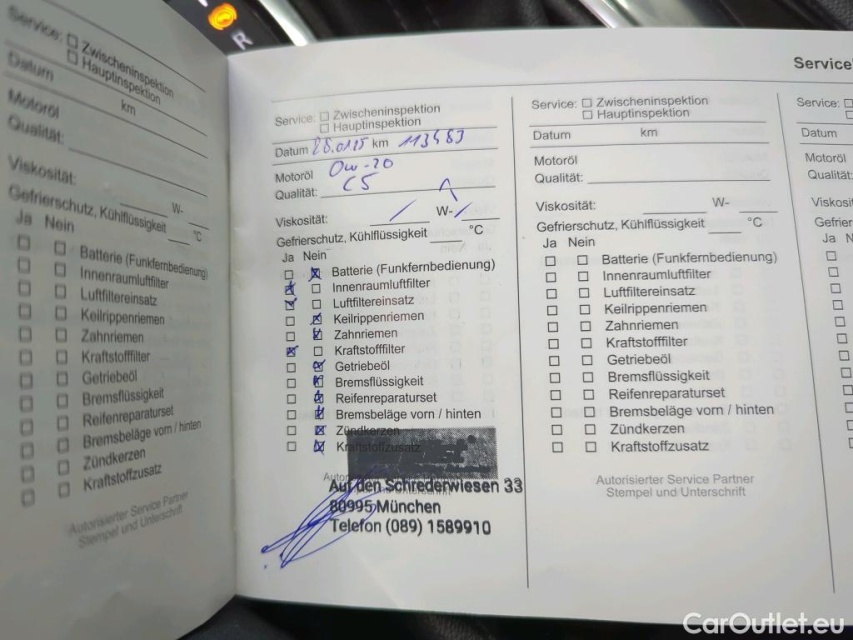 R
Service: Zwischeninspektion
Hauptinspektion
Datum
km
Motoröl
Qualität:
Viskosität:
W-
Gefrierschutz, Kühlflüssigkeit °C
Ja Nein
Batterie (Funkfernbedienung)
Innenraumluftfilter
Luftfiltereinsatz
Keilrippenriemen
Zahnriemen
Kraftstofffilter
Getriebeöl
Bremsflüssigkeit
Reifenreparaturset
Bremsbeläge vorn / hinten
Zündkerzen
Kraftstoffzusatz
Autorisierter Service Partner
Stempel und Unterschrift
Service: Zwischeninspektion
Hauptinspektion
Datum 28.01.25 km 113483
Motoröl 0w-20
Qualität: C5
Viskosität: / W- /
Gefrierschutz, Kühlflüssigkeit °C
Ja Nein
Batterie (Funkfernbedienung)
Innenraumluftfilter
Luftfiltereinsatz
Keilrippenriemen
Zahnriemen
Kraftstofffilter
Getriebeöl
Bremsflüssigkeit
Reifenreparaturset
Bremsbeläge vorn / hinten
Zündkerzen
Kraftstoffzusatz
Auf den Schrederwiesen 33
80995 München
Telefon (089) 1589910
Service: Zwischeninspektion
Hauptinspektion
Datum km
Motoröl
Qualität:
Viskosität: W-
Gefrierschutz, Kühlflüssigkeit °C
Ja Nein
Batterie (Funkfernbedienung)
Innenraumluftfilter
Luftfiltereinsatz
Keilrippenriemen
Zahnriemen
Kraftstofffilter
Getriebeöl
Bremsflüssigkeit
Reifenreparaturset
Bremsbeläge vorn / hinten
Zündkerzen
Kraftstoffzusatz
Autorisierter Service Partner
Stempel und Unterschrift
Service
Service:
Datum
Motoröl
Qualität:
Ja N
CarOutlet.eu